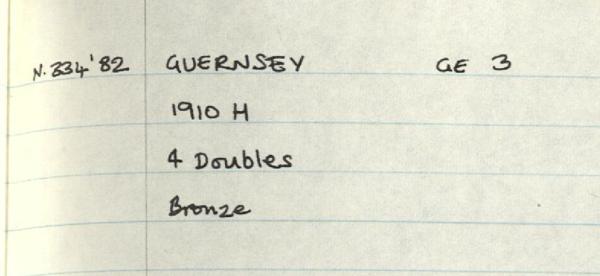 N.334'82 GUERNSEY GE 3
1910 H
4 Doubles
Bronze